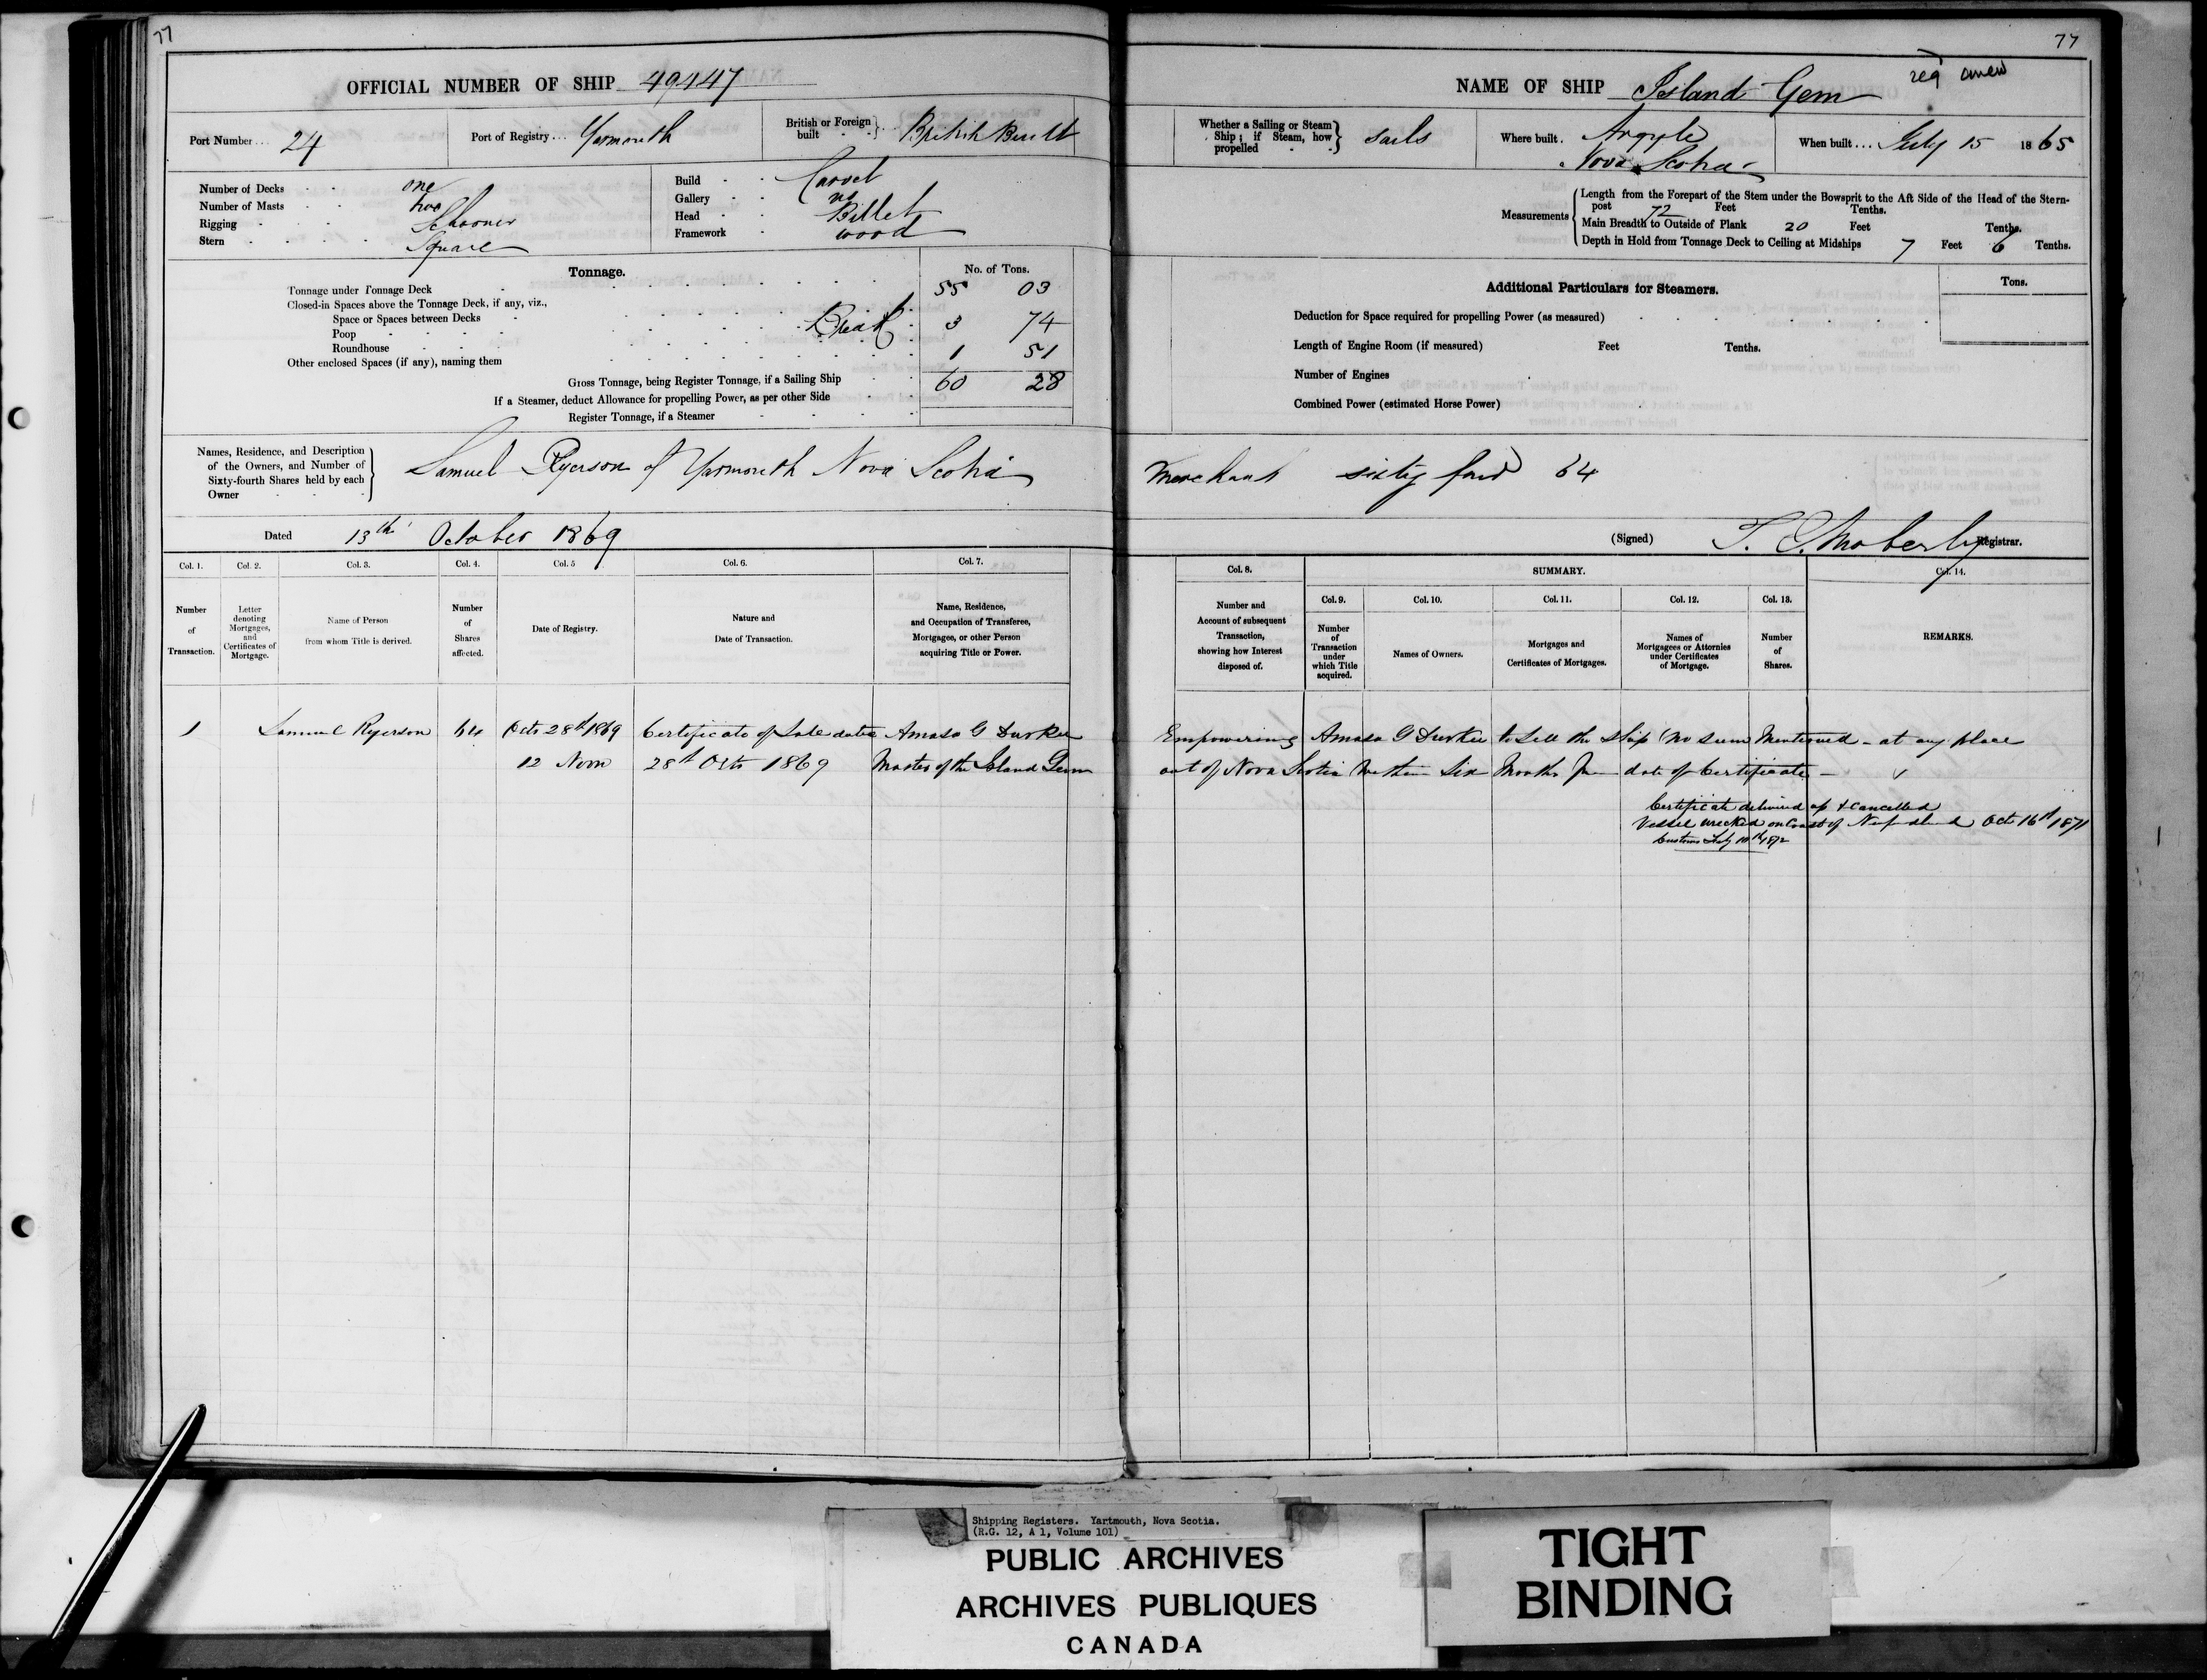 77
OFFICIAL NUMBER OF SHIP 49447
Port Number... 24
Port of Registry... Yarmouth
British or Foreign built } British Built
Number of Decks - - one
Number of Masts - - two
Rigging - - - Schooner
Stern - - - - Square
Build - - Carvel
Gallery - - no
Head - - Billet
Framework - wood
Tonnage.
No. of Tons.
Tonnage under Tonnage Deck 55 03
Closed-in Spaces above the Tonnage Deck, if any, viz.,
Space or Spaces between Decks Break 3 74
Poop
Roundhouse
Other enclosed Spaces (if any), naming them 1 51
Gross Tonnage, being Register Tonnage, if a Sailing Ship 60 28
If a Steamer, deduct Allowance for propelling Power, as per other Side
Register Tonnage, if a Steamer
Names, Residence, and Description
of the Owners, and Number of
Sixty-fourth Shares held by each
Owner
Samuel Ryerson of Yarmouth Nova Scotia
Dated 13th October 1869
Col. 1. Col. 2. Col. 3. Col. 4. Col. 5 Col. 6. Col. 7.
Number of Transaction.
Letter denoting Mortgages, and Certificates of Mortgage.
Name of Person from whom Title is derived.
Number of Shares affected.
Date of Registry.
Nature and Date of Transaction.
Name, Residence, and Occupation of Transferee, Mortgagee, or other Person acquiring Title or Power.
1 Samuel Ryerson 64 Octo 28th 1869 Certificate of Sale dated Amasa G Durkee
12 Noon 28th Octo 1869 Master of the Island Gem
77
NAME OF SHIP Island Gem
reg anew
Whether a Sailing or Steam Ship; if Steam, how propelled } Sails
Where built. Argyle
Nova Scotia
When built... July 15 1865
Measurements
Length from the Forepart of the Stem under the Bowsprit to the Aft Side of the Head of the Stern-
post 72 Feet Tenths.
Main Breadth to Outside of Plank 20 Feet Tenths.
Depth in Hold from Tonnage Deck to Ceiling at Midships 7 Feet 6 Tenths.
Additional Particulars for Steamers.
Tons.
Deduction for Space required for propelling Power (as measured)
Length of Engine Room (if measured) Feet Tenths.
Number of Engines
Combined Power (estimated Horse Power)
Merchant sixty four 64
(Signed) T. E. Moberly Registrar.
Col. 8. SUMMARY. Col. 14.
Col. 9. Col. 10. Col. 11. Col. 12. Col. 13.
Number and Account of subsequent Transaction, showing how Interest disposed of.
Number of Transaction under which Title acquired.
Names of Owners.
Mortgages and Certificates of Mortgages.
Names of Mortgagees or Attornies under Certificates of Mortgage.
Number of Shares.
REMARKS.
Empowering Amasa G Durkee to Sell the Ship (no sum Mentioned - at any place
out of Nova Scotia Within Six Months from date of Certificate -
Certificate delivered up & Cancelled
Vessel wrecked on Coast of Nfundland Octo 16th 1871
Shipping Registers. Yartmouth, Nova Scotia.
(R.G. 12, A 1, Volume 101)
PUBLIC ARCHIVES
ARCHIVES PUBLIQUES
CANADA
TIGHT
BINDING